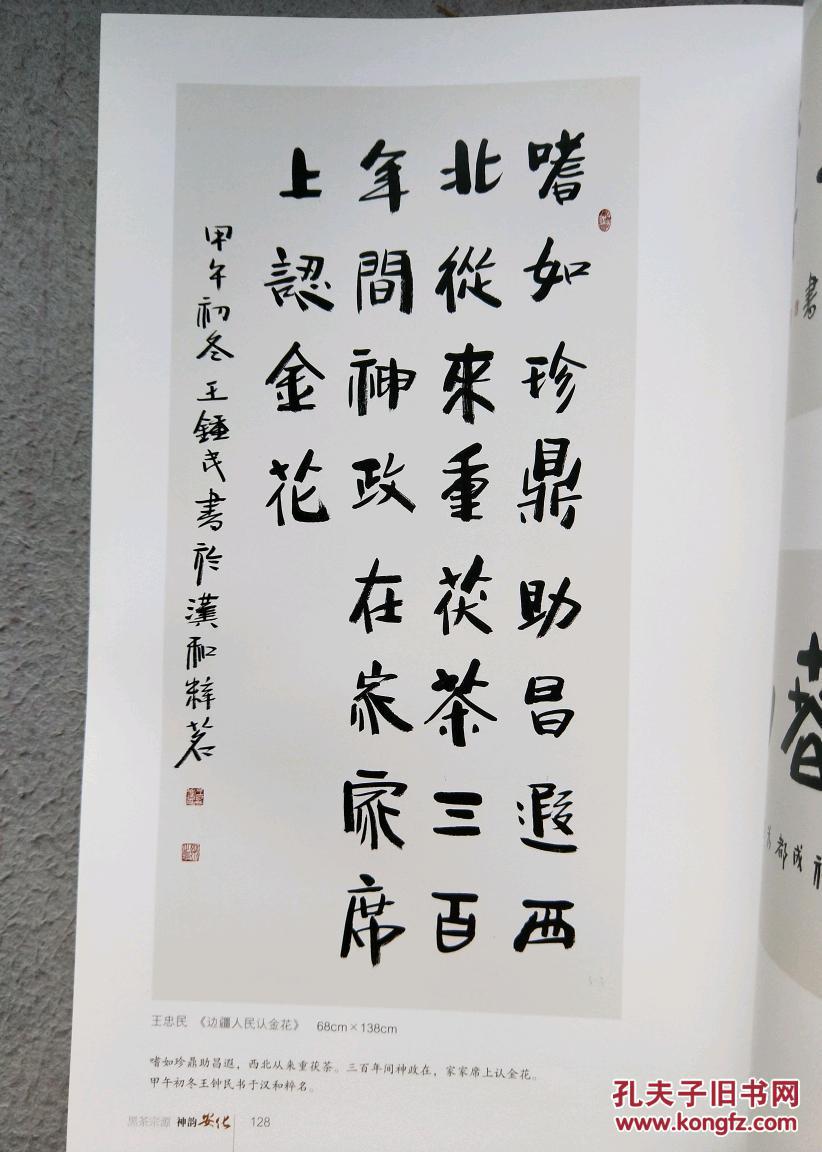 嗜如珍鼎助昌遐西
北從來重茯茶三百
年間神政在家家席
上認金花
甲午初冬王鍾民書於漢和粹茗
王忠民 《边疆人民认金花》 68cm×138cm
嗜如珍鼎助昌遐，西北从来重茯茶。三百年间神政在，家家席上认金花。
甲午初冬王钟民书于汉和粹名。
黑茶宗源 神韵安化 128
書
都成
孔夫子旧书网
www.kongfz.com